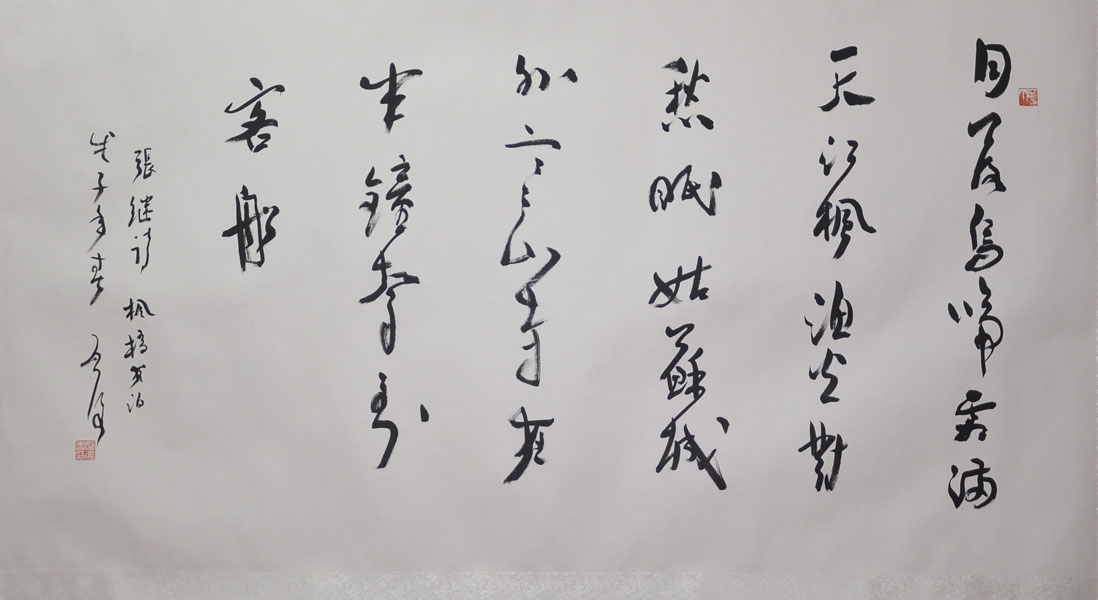 月落烏啼霜滿
天江楓漁火對
愁眠姑蘇城
外寒山寺夜
半鐘聲到
客船
張继詩 楓橋夜泊
戊子年春